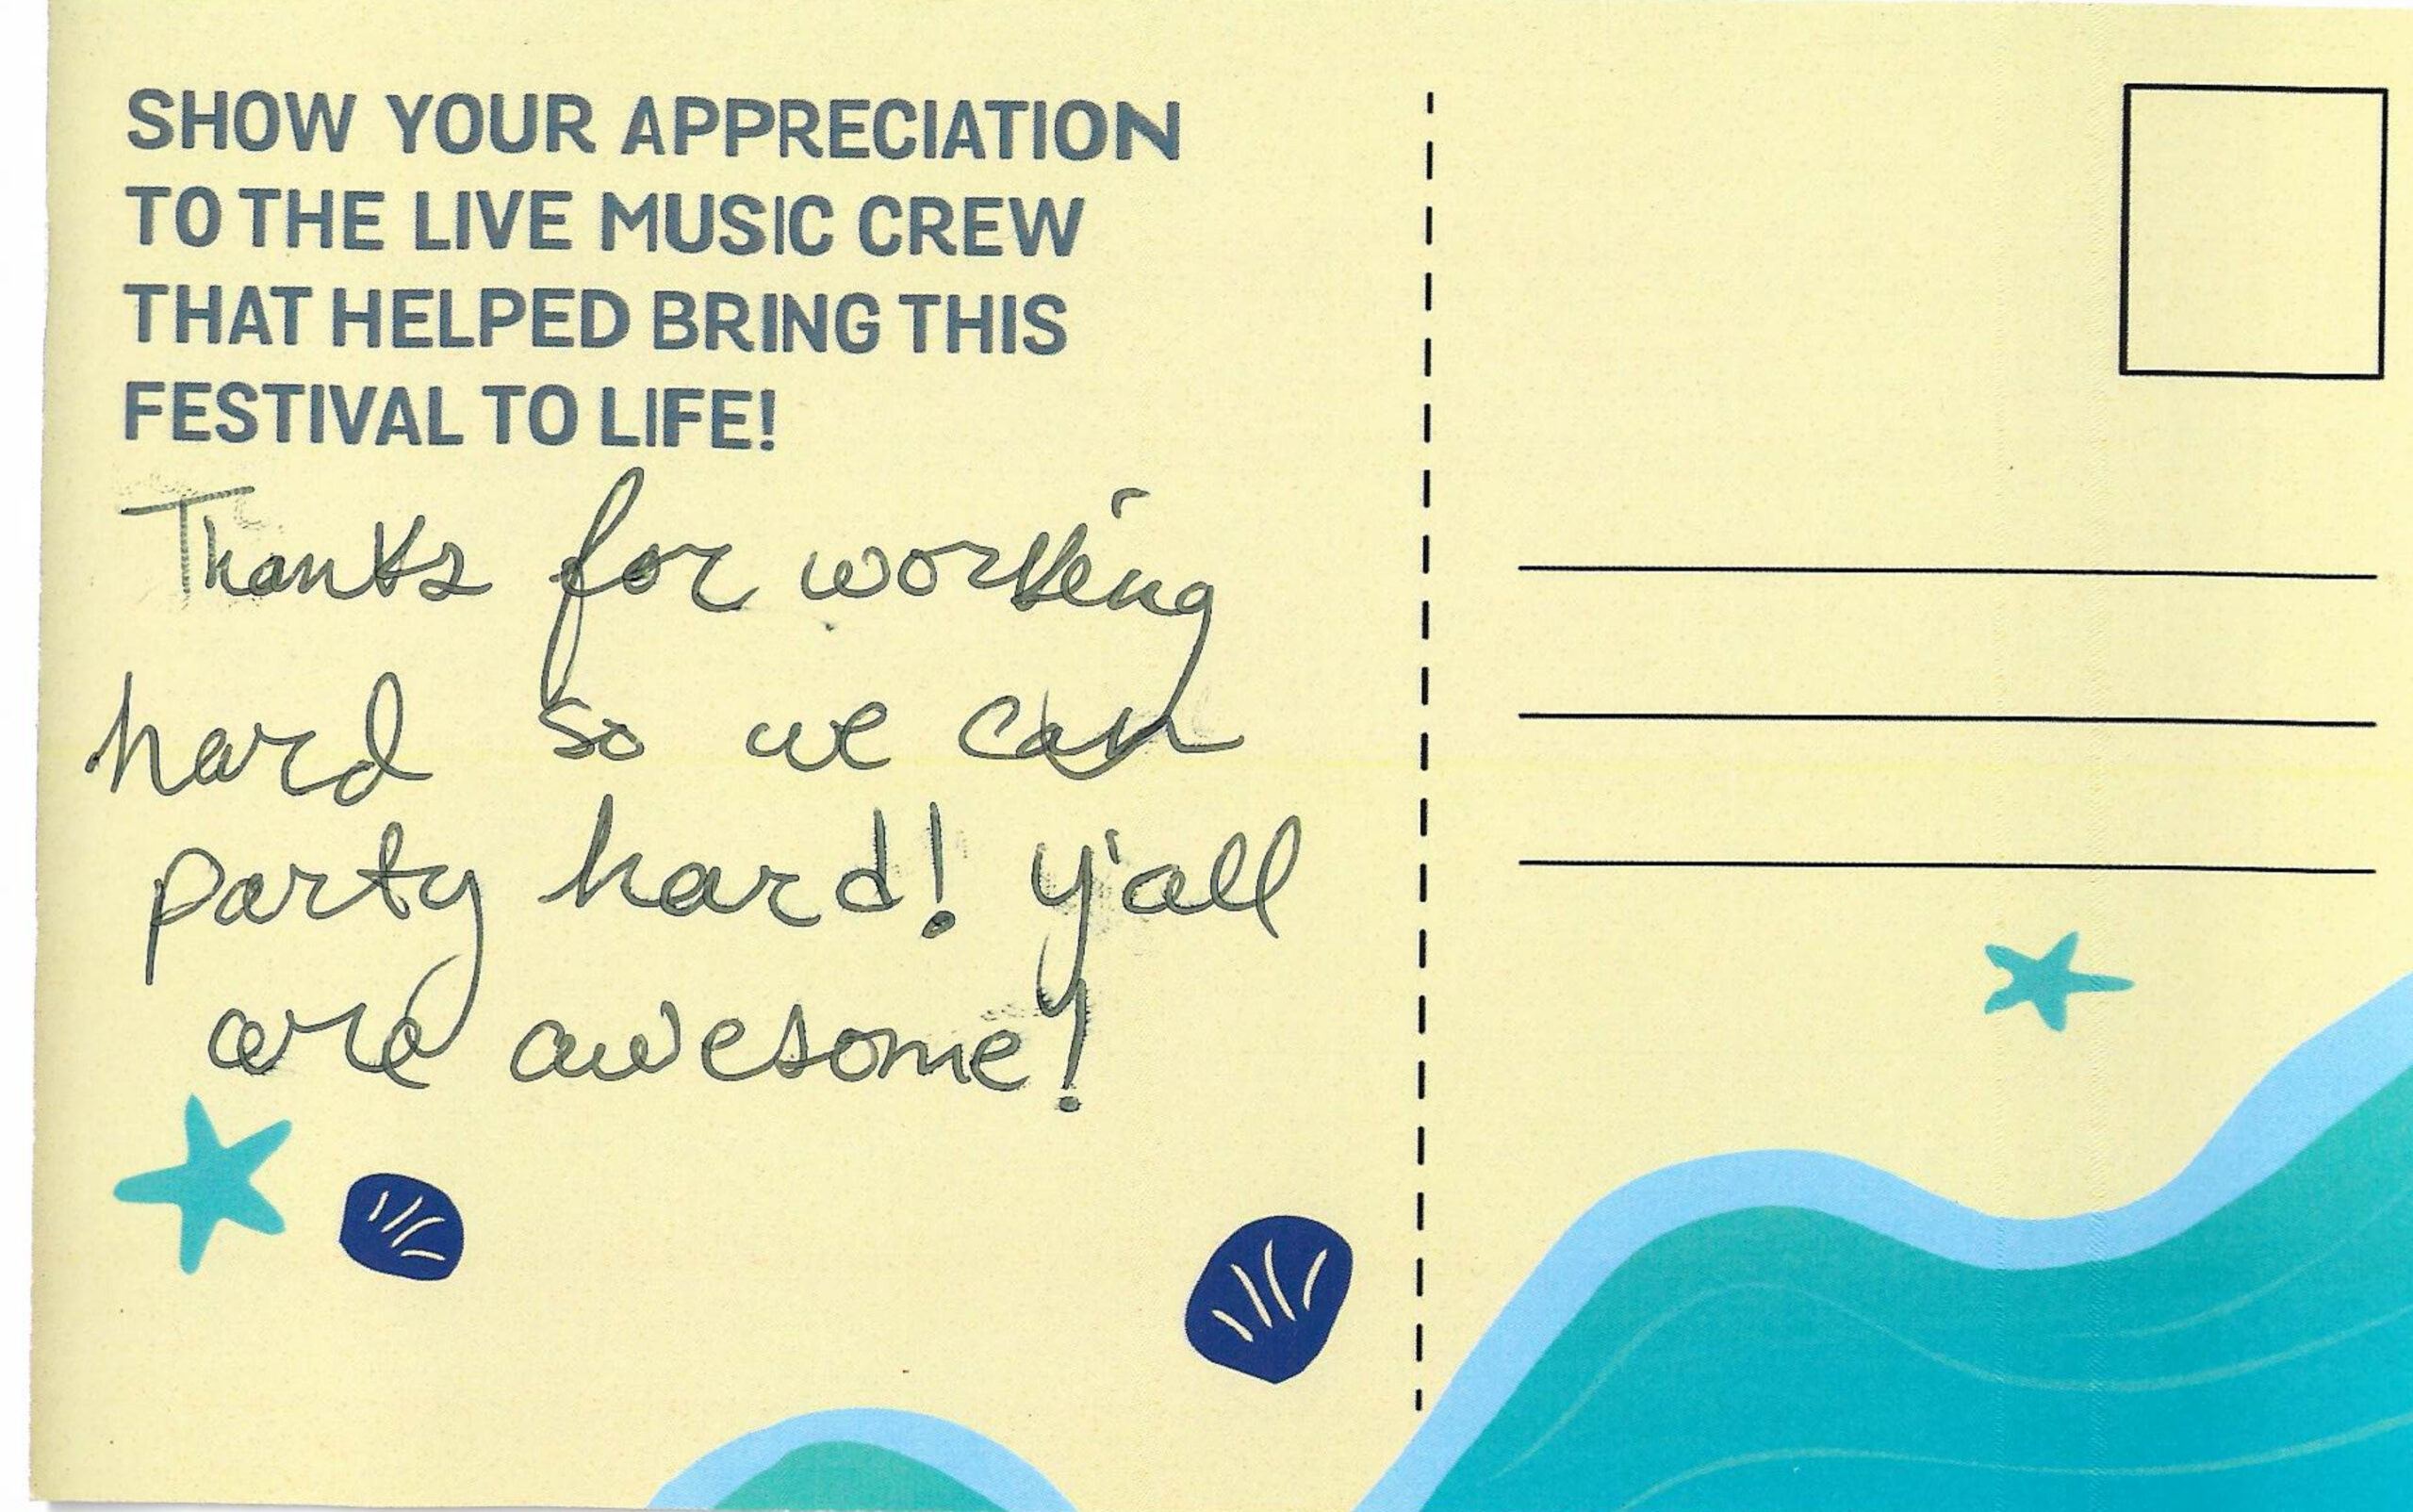 SHOW YOUR APPRECIATION
TO THE LIVE MUSIC CREW
THAT HELPED BRING THIS
FESTIVAL TO LIFE!
Thanks for working
hard so we can
party hard! y'all
are awesome!